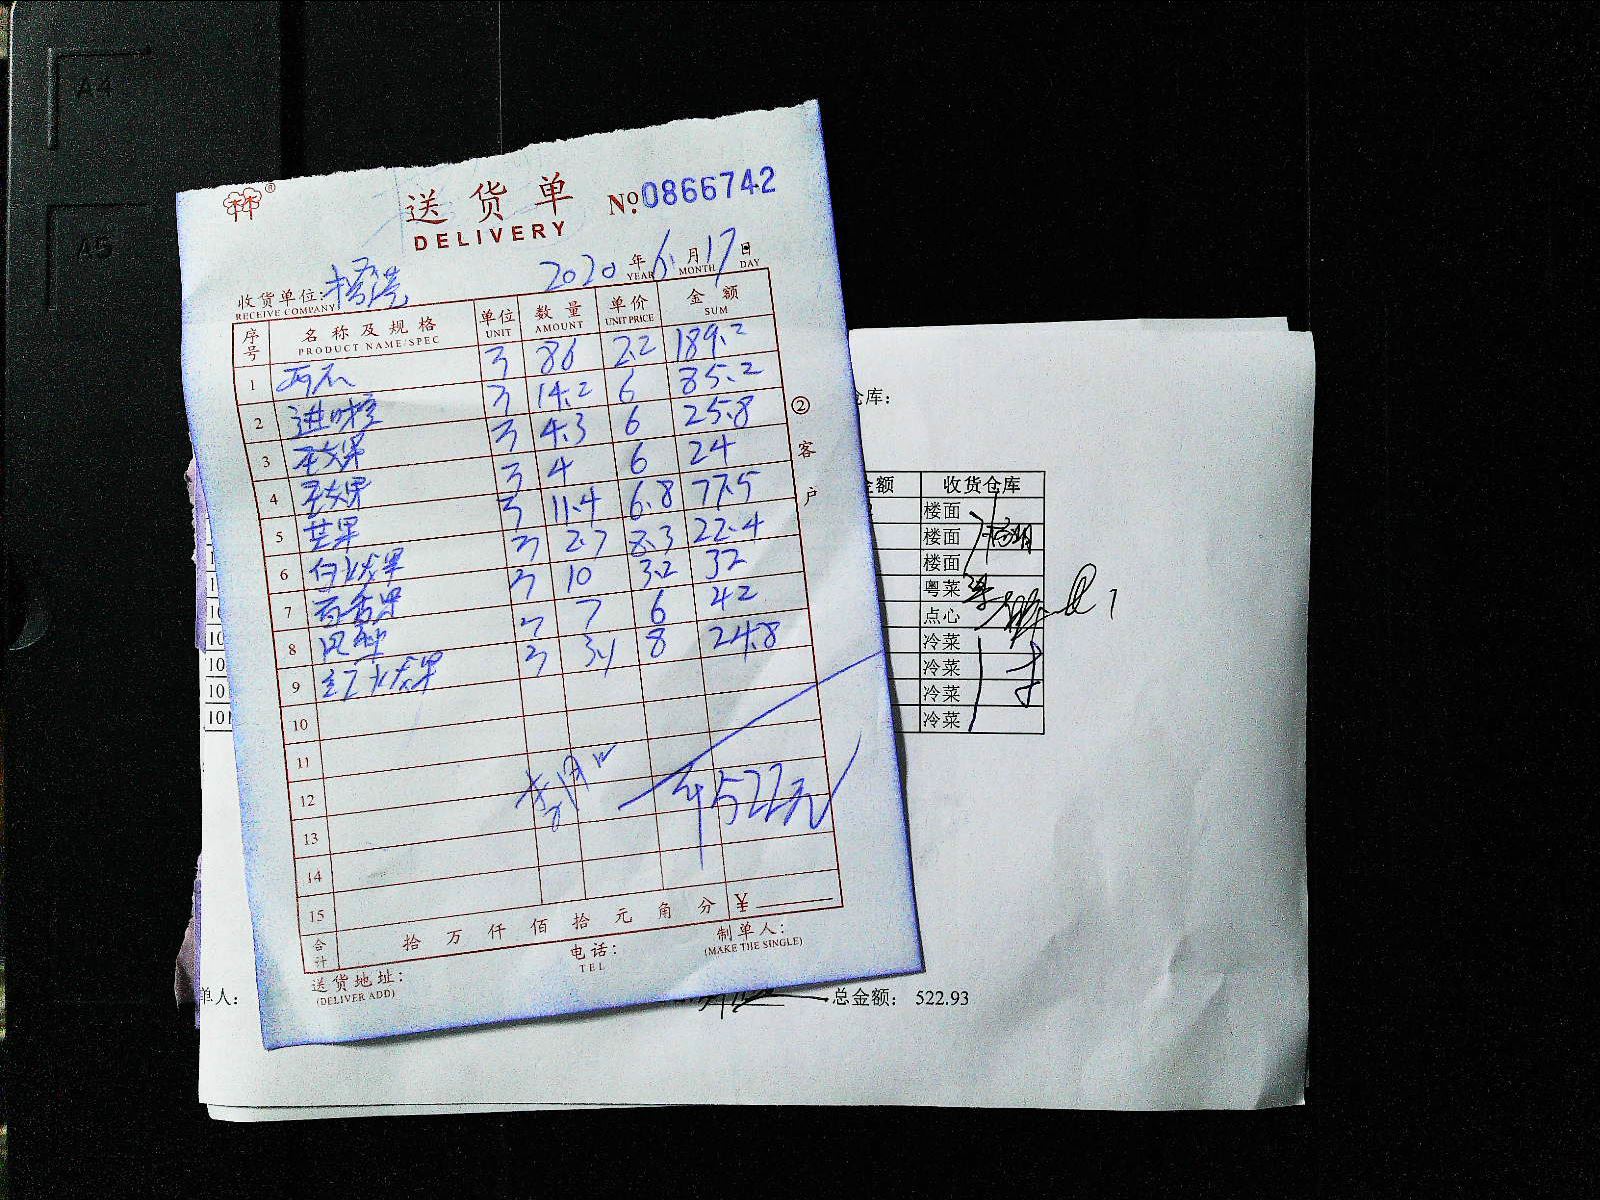 A4
A5
送货单
DELIVERY
№ 0866742
2020年6月17日
YEAR MONTH DAY
收货单位:
RECEIVE COMPANY
序号 名称及规格 单位 数量 单价 金额
PRODUCT NAME/SPEC UNIT AMOUNT UNIT PRICE SUM
1 西瓜 86 2.2 189.2
2 14.2 6 85.2
3 4.3 6 25.8
4 4 6 24
5 芒果 11.4 6.8 77.5
6 白火龙果 2.7 8.3 22.4
7 百香果 10 3.2 32
8 凤梨 7 6 42
9 红火龙果 3.1 8 24.8
10
11
12 522元
13
14
15
合计 拾万仟佰拾元角分 ¥
送货地址:
(DELIVER ADD)
电话:
TEL
制单人:
(MAKE THE SINGLE)
②客户
仓库:
金额 收货仓库
楼面
楼面
楼面
粤菜
点心
冷菜
冷菜
冷菜
冷菜
10
10
10
10
101
单人:
总金额: 522.93